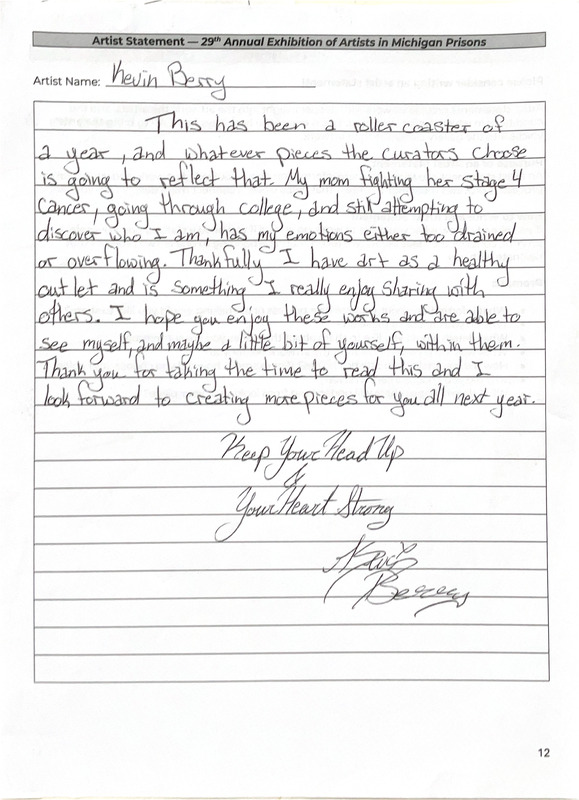 Artist Statement — 29th Annual Exhibition of Artists in Michigan Prisons
Artist Name: Kevin Berry
This has been a roller coaster of
a year, and whatever pieces the curators choose
is going to reflect that. My mom fighting her stage 4
Cancer, going through college, and still attempting to
discover who I am, has my emotions either too drained
or overflowing. Thankfully I have art as a healthy
outlet and is something I really enjoy sharing with
others. I hope you enjoy these works and are able to
see myself, and maybe a little bit of yourself, within them.
Thank you for taking the time to read this and I
look forward to creating more pieces for you all next year.
Keep Your Head Up
&
Your Heart Strong
Kevin
Berry
12